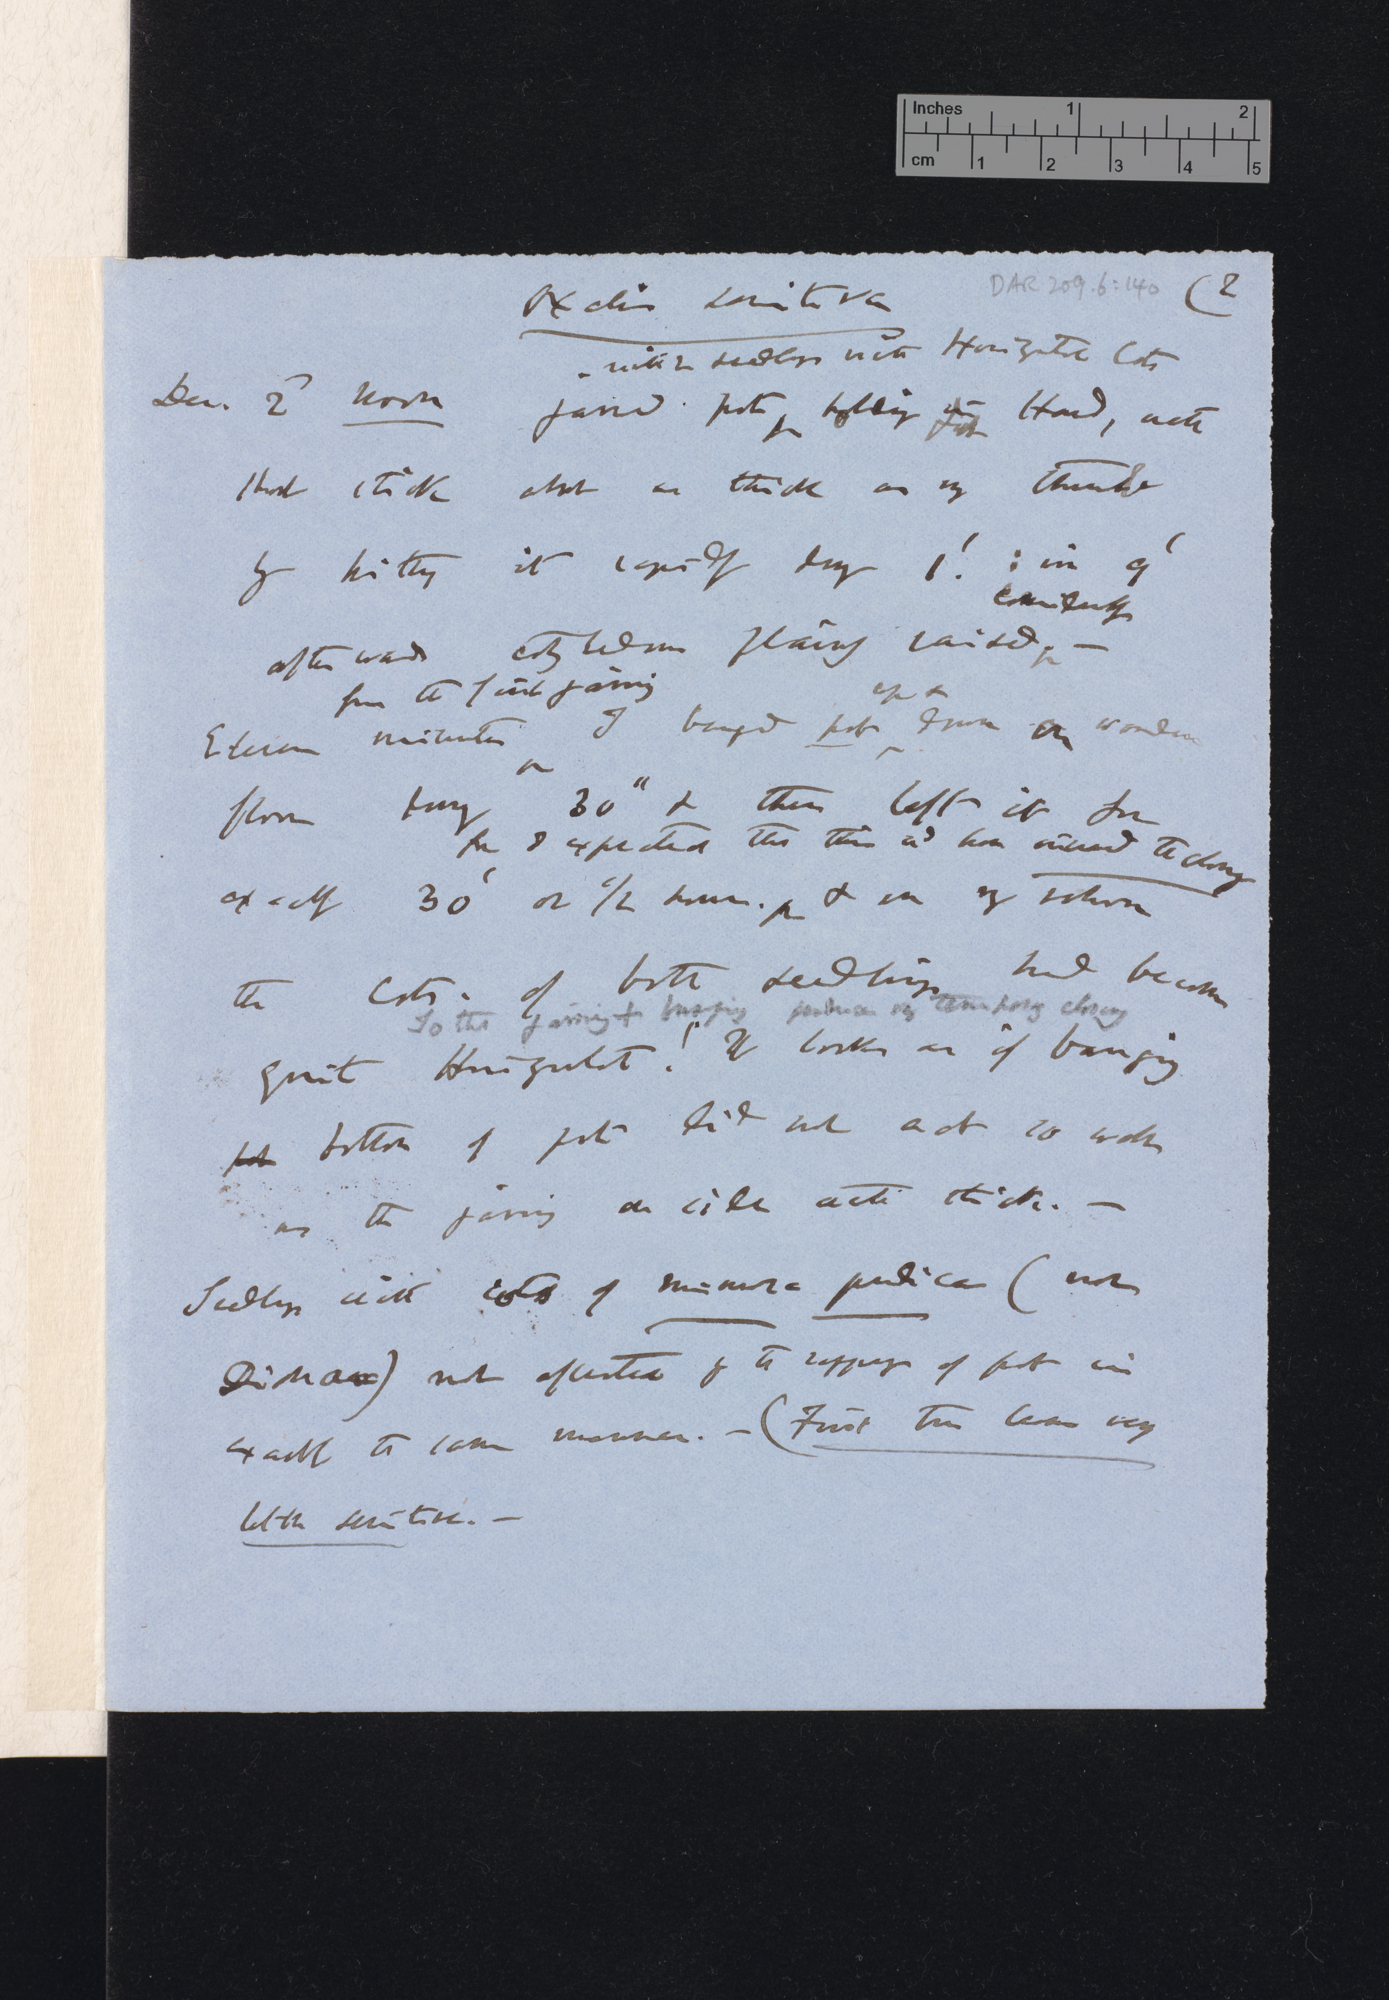 Inches 1 2
cm 1 2 3 4 5
DAR 209.6:140 (2
Oxalis sensitiva
with 2 seedlings with Horizontal Cots
Dec. 2d Noon jarred pot, holding in Hand, with
short stick about as thick as my thumb
by hitting it rapidly during 1'! : in 9'
considerably
afterwards cotyledons plainly raised; —
from the first jarring
Eleven minutes I banged pot up & down on wooden
floor during 30" & then left it for
for I expected that this wd have caused the closing
exactly 30' or 1/2 hour. & on my return
the Cots. of both seedlings had become
So this jarring & banging produces very temporary closing
quite Horizontal! It looks as if banging
pot bottom of pot did not act so well
as the jarring on side with stick. —
Seedlings with cots of Mimosa pudica (not
) not affected by the rapping of pot in
exactly the same manner. — (First true leaves very
little sensitive. —